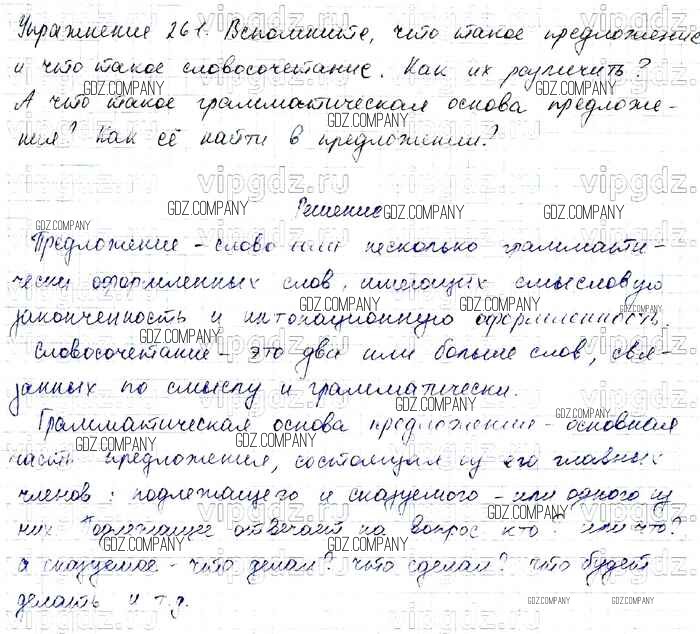 Упражнение 261. Вспомните, что такое предложение
и что такое словосочетание. Как их различить?
А что такое грамматическая основа предложе-
ния? Как её найти в предложении?
Решение
Предложение - слово или несколько граммати-
чески оформленных слов, имеющих смысловую
законченность и интонационную оформленность.
Словосочетание - это два или больше слов, свя-
занных по смыслу и грамматически.
Грамматическая основа предложения - основная
часть предложения, состоящая из его главных
членов: подлежащего и сказуемого - или одного из
них. Подлежащее отвечает на вопрос кто? или что?
а сказуемое - что делал? что сделал? что будет
делать и т.д.
vipgdz.ru
GDZ.COMPANY